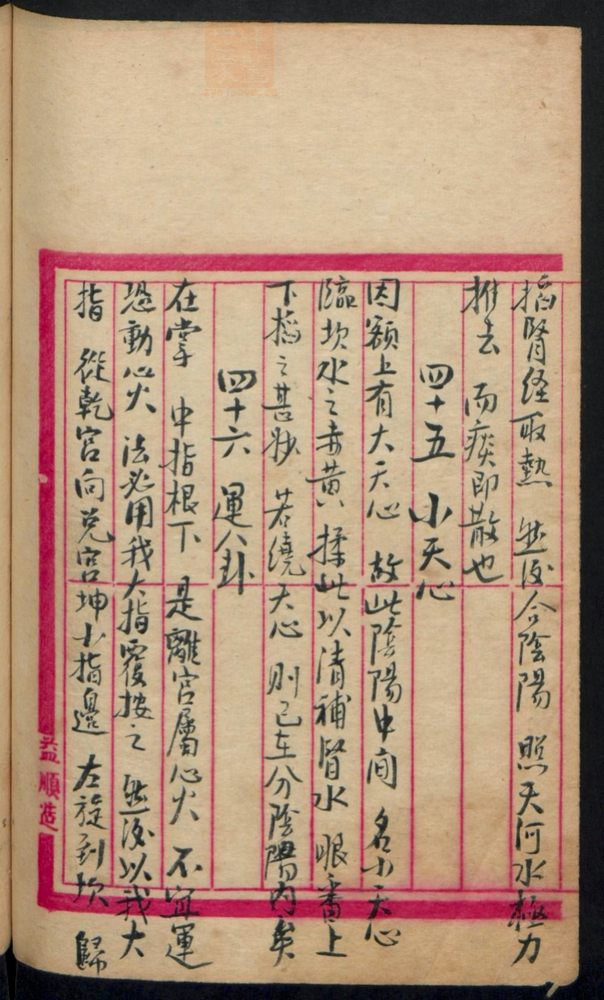 掐腎经取熱 然後合陰陽 照天河水極力
推去 而痰即散也
四十五 小天心
因額上有大天心 故此陰陽中间 名小天心
臨坎水之赤黄 揉此以清補腎水 眼番上
下掐之甚妙 若繞天心 则已在分陰陽内矣
四十六 運八卦
在掌 中指根下 是離宮屬心火 不宜運
恐動心火 法必用我大指覆按之 然後以我大
指 從乾宮向兑宮坤小指邊 左旋到坎 歸
益順造